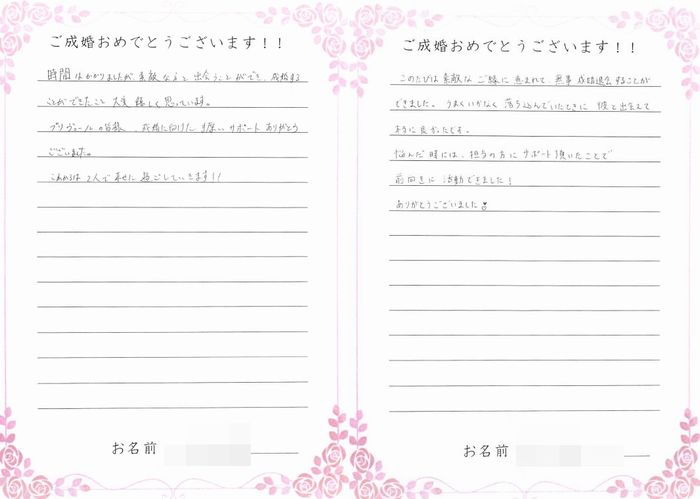 ご成婚おめでとうございます！！
時間はかかりましたが、素敵な人と出会うことができ、成婚する
ことができたこと大変嬉しく思っています。
プリヴェールの皆様、成婚に向けた手厚いサポートありがとう
ございました。
これからは2人で幸せに過ごしていきます!!
お名前
ご成婚おめでとうございます！！
このたびは素敵なご縁に恵まれて、無事成婚退会することが
できました。うまくいかなく落ち込んでいたときに彼と出会えて
本当に良かったです。
悩んだ時には、担当の方にサポート頂いたことで
前向きに活動できました!
ありがとうございました
お名前